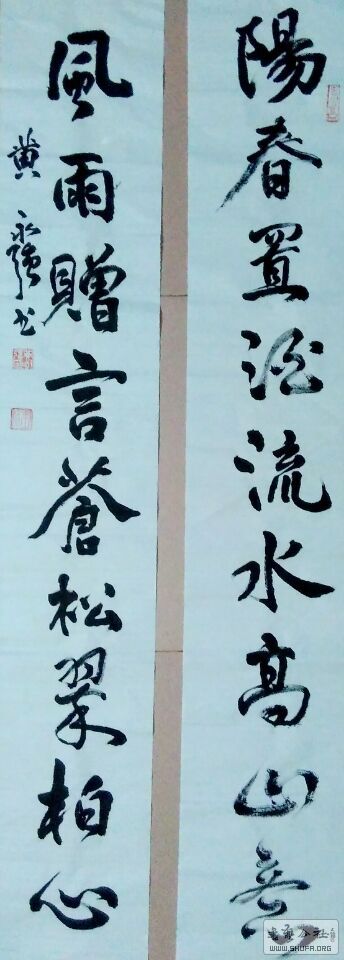 陽春置酒流水高山意
風雨贈言蒼松翠柏心
黄永强书
书法公社
WWW.SHUFA.ORG